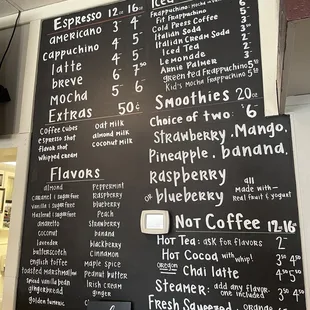 Espresso 12oz 16oz
americano 3 4
cappuccino 4 5
latte 4 5
breve 6 7.50
mocha 5 6
Extras 50¢
Coffee Cubes
espresso shot
flavor shot
whipped cream
oat milk
almond milk
coconut milk
Flavors
almond
caramel & sugarfree
vanilla & sugarfree
hazelnut & sugarfree
amaretto
coconut
banana
lavender
butterscotch
english toffee
toasted marshmallow
spiced vanilla
gingerbread
golden turmeric
Peppermint
Raspberry
blueberry
Peach
strawberry
blackberry
Cinnamon
maple spice
Peanut butter
Irish cream
ginger
Iced
Frappuccino:
Fit Frappuccino
Cold Press Coffee
Italian Soda
Italian Cream Soda
Iced Tea
Lemonade
Arnie Palmer
green tea Frappuccino
Kid's Mocha Frappuccino
Smoothies 20oz
Choice of two: 6
Strawberry. Mango.
Pineapple. banana.
raspberry
or blueberry
all made with—
Real fruit & yogurt
Not Coffee 12oz 16oz
Hot Tea: ask for flavors 2
Hot Cocoa with whip! 3.50 4.50
oregon Chai latte 4.50 5.50
Steamer: add any flavor one included 3 4
Fresh Squeezed